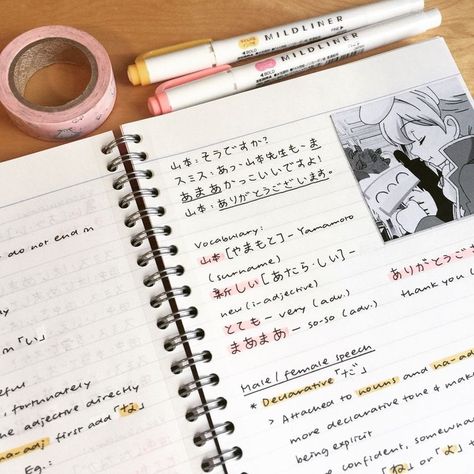 BOLD MILDLINER
BOLD MILDLINER
山本:そうですか?
スミス:あっ、山本先生も、ま
あまあかっこいいですよ!
山本:ありがとうございます。
Vocabulary:
山本[やまもと]- Yamamoto
(surname)
新しい[あたら・しい]-
new (i-adjective)
とても - very (adv.)
まあまあ - so-so (adv.)
ありがとうござ
thank you
Male / female speech
* Declarative「だ」
> Attached to nouns and na-ad
more declarative tone & mak
being explicit
confident, somewha
「ね」or「よ」
do not end in
「い」
, fortunately
the adjective directly
na-adj: first add「な」
Eg.: